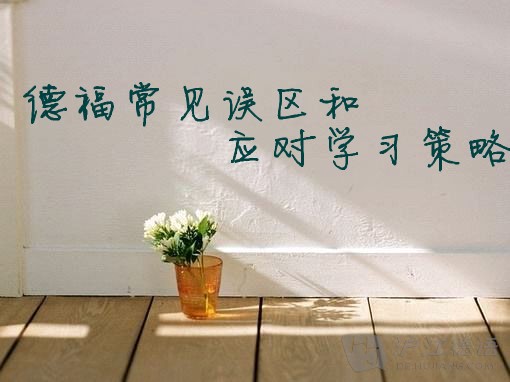 德福常见误区和
应对学习策略